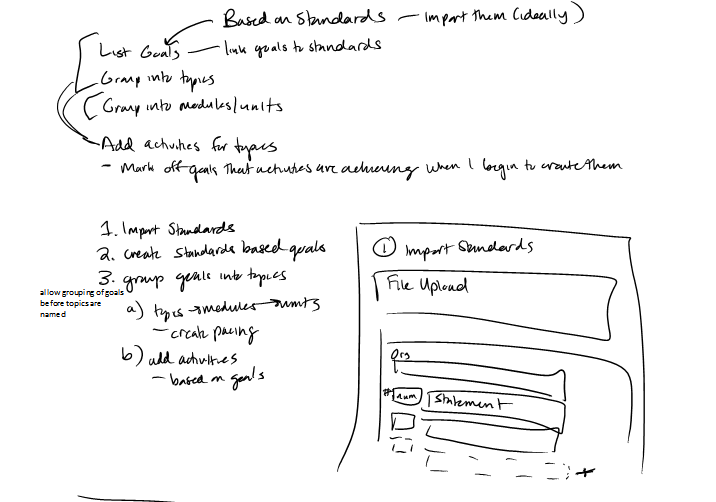 Based on Standards — Import them (ideally)
List Goals — link goals to standards
Group into topics
Group into modules/units
Add activities for topics
- Mark off goals that activities are achieving when I begin to create them
1. Import Standards
2. Create standards based goals
3. group goals into topics
allow grouping of goals
before topics are
named
a) topics → modules → units
- create pacing
b) add activities
- based on goals
① Import Standards
File Upload
Org
# num Statement
+